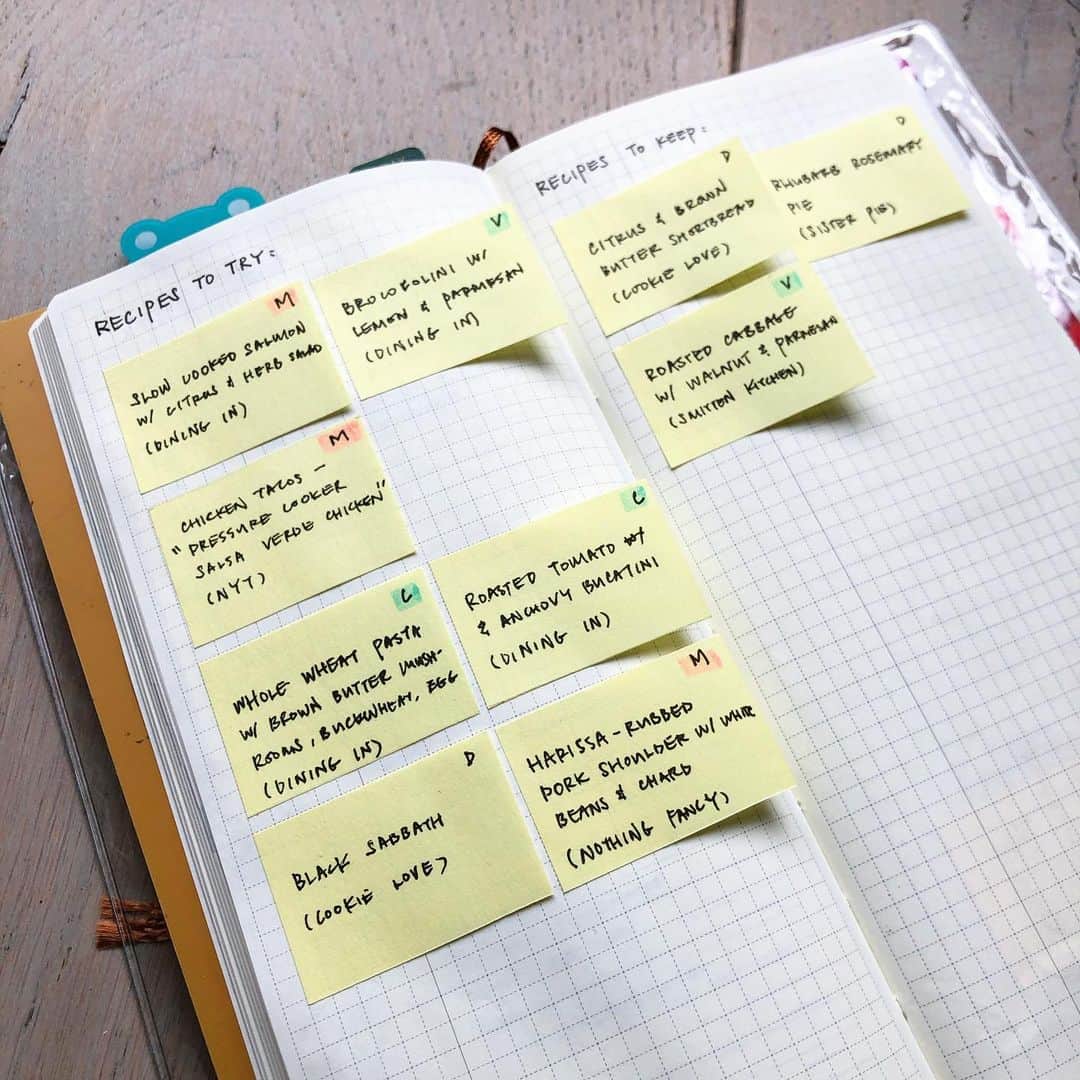 RECIPES TO TRY:
M
SLOW COOKED SALMON
W/ CITRUS & HERB SALAD
(DINING IN)
V
BROCCOLINI W/
LEMON & PARMESAN
(DINING IN)
M
CHICKEN TACOS -
"PRESSURE COOKER
SALSA VERDE CHICKEN"
(NYT)
C
WHOLE WHEAT PASTA
W/ BROWN BUTTER MUSH-
ROOMS, BUCKWHEAT, EGG
(DINING IN)
C
ROASTED TOMATO
& ANCHOVY BUCATINI
(DINING IN)
D
BLACK SABBATH
(COOKIE LOVE)
M
HARISSA-RUBBED
PORK SHOULDER W/ WHITE
BEANS & CHARD
(NOTHING FANCY)
RECIPES TO KEEP:
D
CITRUS & BROWN
BUTTER SHORTBREAD
(COOKIE LOVE)
D
RHUBARB ROSEMARY
PIE
(SISTER PIE)
V
ROASTED CABBAGE
W/ WALNUT & PARMESAN
(SMITTEN KITCHEN)